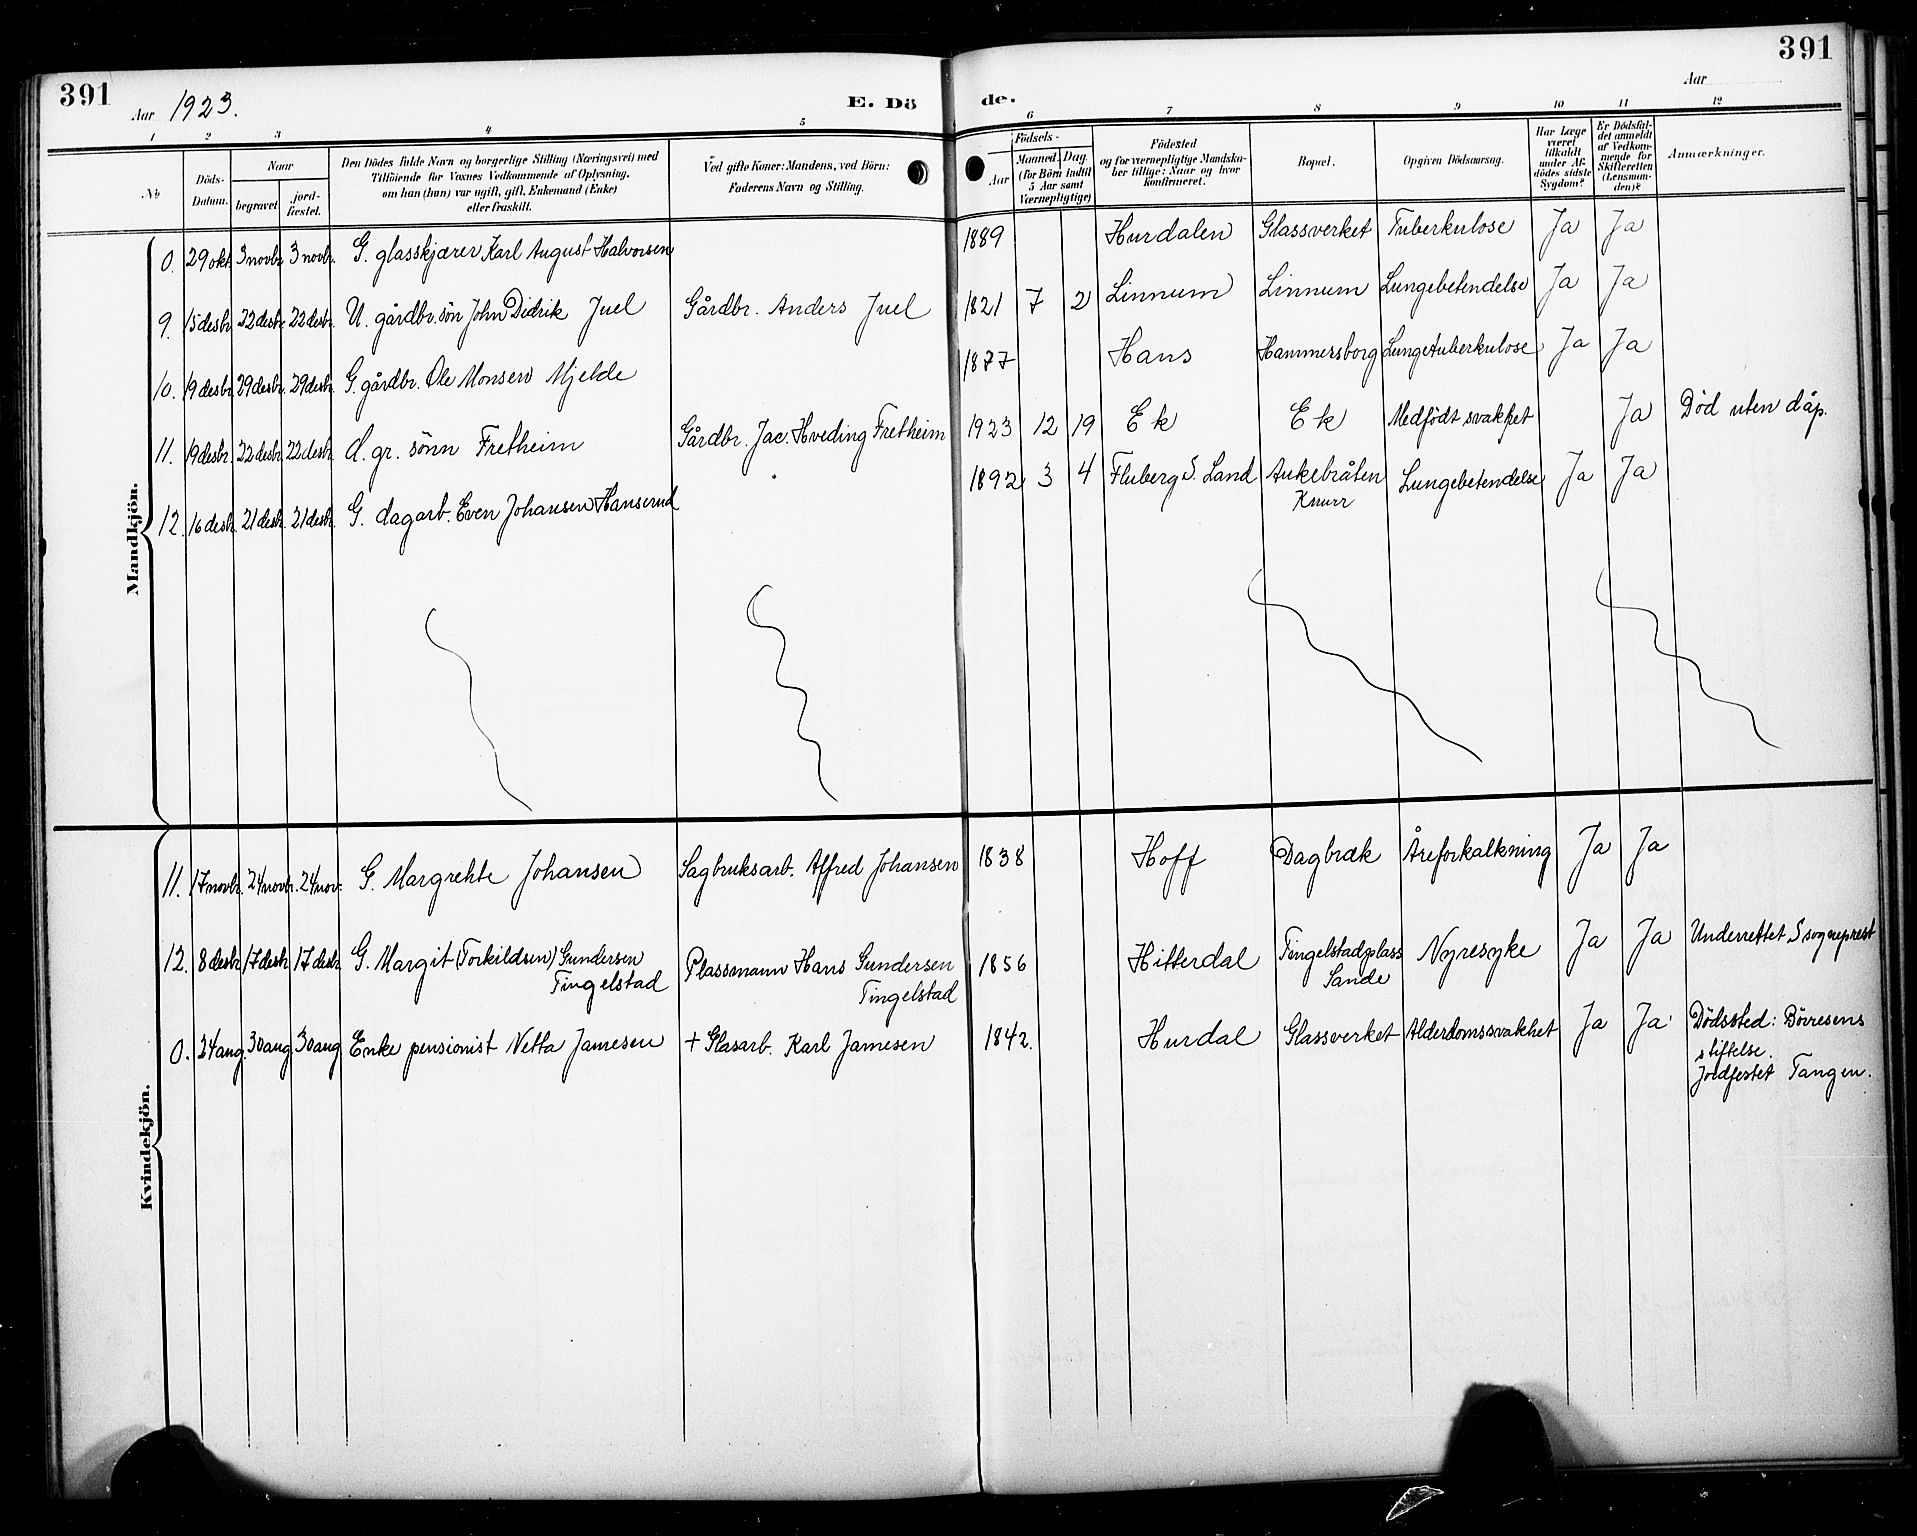 391
Aar 1923.
E. Dö
de.
Aar
391
1 2 3 4 5 6 7 8 9 10 11 12
№
Döds-
Datum.
Naar
begravet
jord-
fæstet.
Den Dödes fulde Navn og borgerlige Stilling (Næringsvei) med
Tilföiende for Voxnes Vedkommende af Oplysning,
om han (hun) var ugift, gift, Enkemand (Enke)
eller fraskilt.
Ved gifte Koner: Mandens, ved Börn:
Faderens Navn og Stilling.
Födsels-
Aar
Maaned. Dag.
(for Börn indtil
5 Aar samt
Værnepligtige)
Födested
og for værnepligtige Mandska-
ber tillige: Naar og hvor
konfirmeret.
Bopæl.
Opgiven Dödsaarsag.
Har Læge
været
tilkaldt
under Af-
dödes sidste
Sygdom?
Er Dödsfal-
det anmeldt
af Vedkom-
mende for
Skifteretten
(Lensman-
den)?
Anmærkninger.
Mandkjön.
0. 29 okt. 3 novbr. 3 novbr. G. glasskjærer Karl August Halvorsen 1889 Hurdalen Glassverket Tuberkulose Ja Ja
9. 15 desbr. 22 desbr. 22 desbr. U. gårdbr. sön John Didrik Juel Gårdbr. Anders Juel 1821 7 2 Linnum Linnum Lungebetendelse Ja Ja
10. 19 desbr. 29 desbr. 29 desbr. G. gårdbr. Ole Monsen Mjelde 1877 Hans Hammersborg Lungetuberkulose Ja Ja
11. 19 desbr. 22 desbr. 22 desbr. d. gr. sönn Fretheim Gårdbr. Jac. Hveding Fretheim 1923 12 19 Ek Ek Medfödt svakhet Ja Död uten dåp.
12. 16 desbr. 21 desbr. 21 desbr. G. dagarb. Even Johansen Hanserud 1892 3 4 Fluberg S. Land Aukebråten Lungebetendelse Ja Ja
Knurr
Kvindekjön.
11. 17 novbr. 24 novbr. 24 nov. G. Margrehte Johansen Sagbruksarb. Alfred Johansen 1838 Hoff Dagbræk Åreforkalkning Ja Ja
12. 8 desbr. 17 desbr. 17 desbr. G. Margit (Torkildsen) Gundersen Plassmann Hans Gundersen 1856 Hitterdal Tingelstadplass Nyresyke Ja Ja Underrettet S sogneprest
Tingelstad Tingelstad Sande
0. 24 aug. 30 aug. 30 aug. Enke pensionist Netta Jamesen + Glasarb. Karl Jamesen 1842. Hurdal Glassverket Alderdomssvakhet Ja Ja Dödssted: Börresens
stiftelse.
Jordfestet Tangen.